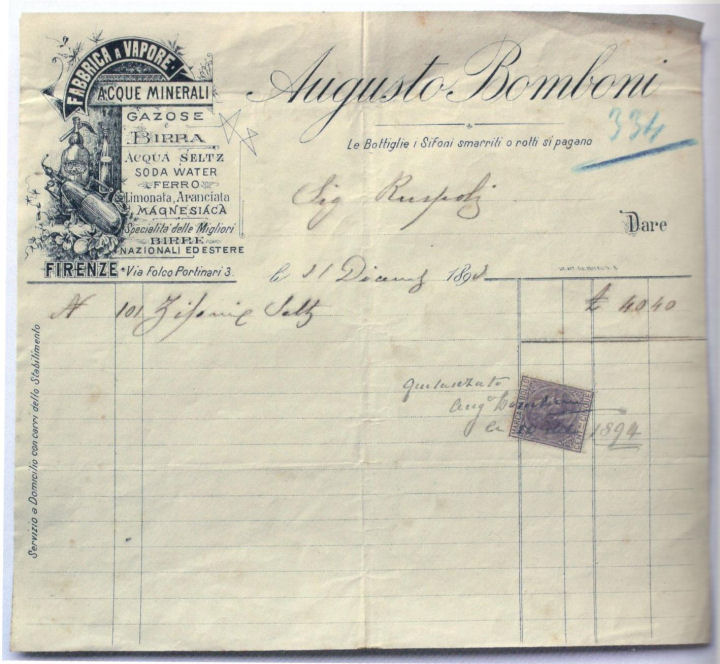 FABBRICA A VAPORE
ACQUE MINERALI
GAZOSE
E
BIRRA
ACQUA SELTZ
SODA WATER
FERRO
Limonata, Aranciata
MAGNESIACA
Specialità delle Migliori
BIRRE
NAZIONALI ED ESTERE
FIRENZE • Via Folco Portinari 3.
Augusto Bomboni
Le Bottiglie i Sifoni smarriti o rotti si pagano
334
Sig Ruspoli
Dare
li 31 Dicemb 1893
N 101 Zifoni Seltz £ 40 40
quitanzato
Aug° Bomboni
li 1894
MARCA DA BOLLO
CENT. CINQUE
Servizio a Domicilio con carri dello Stabilimento